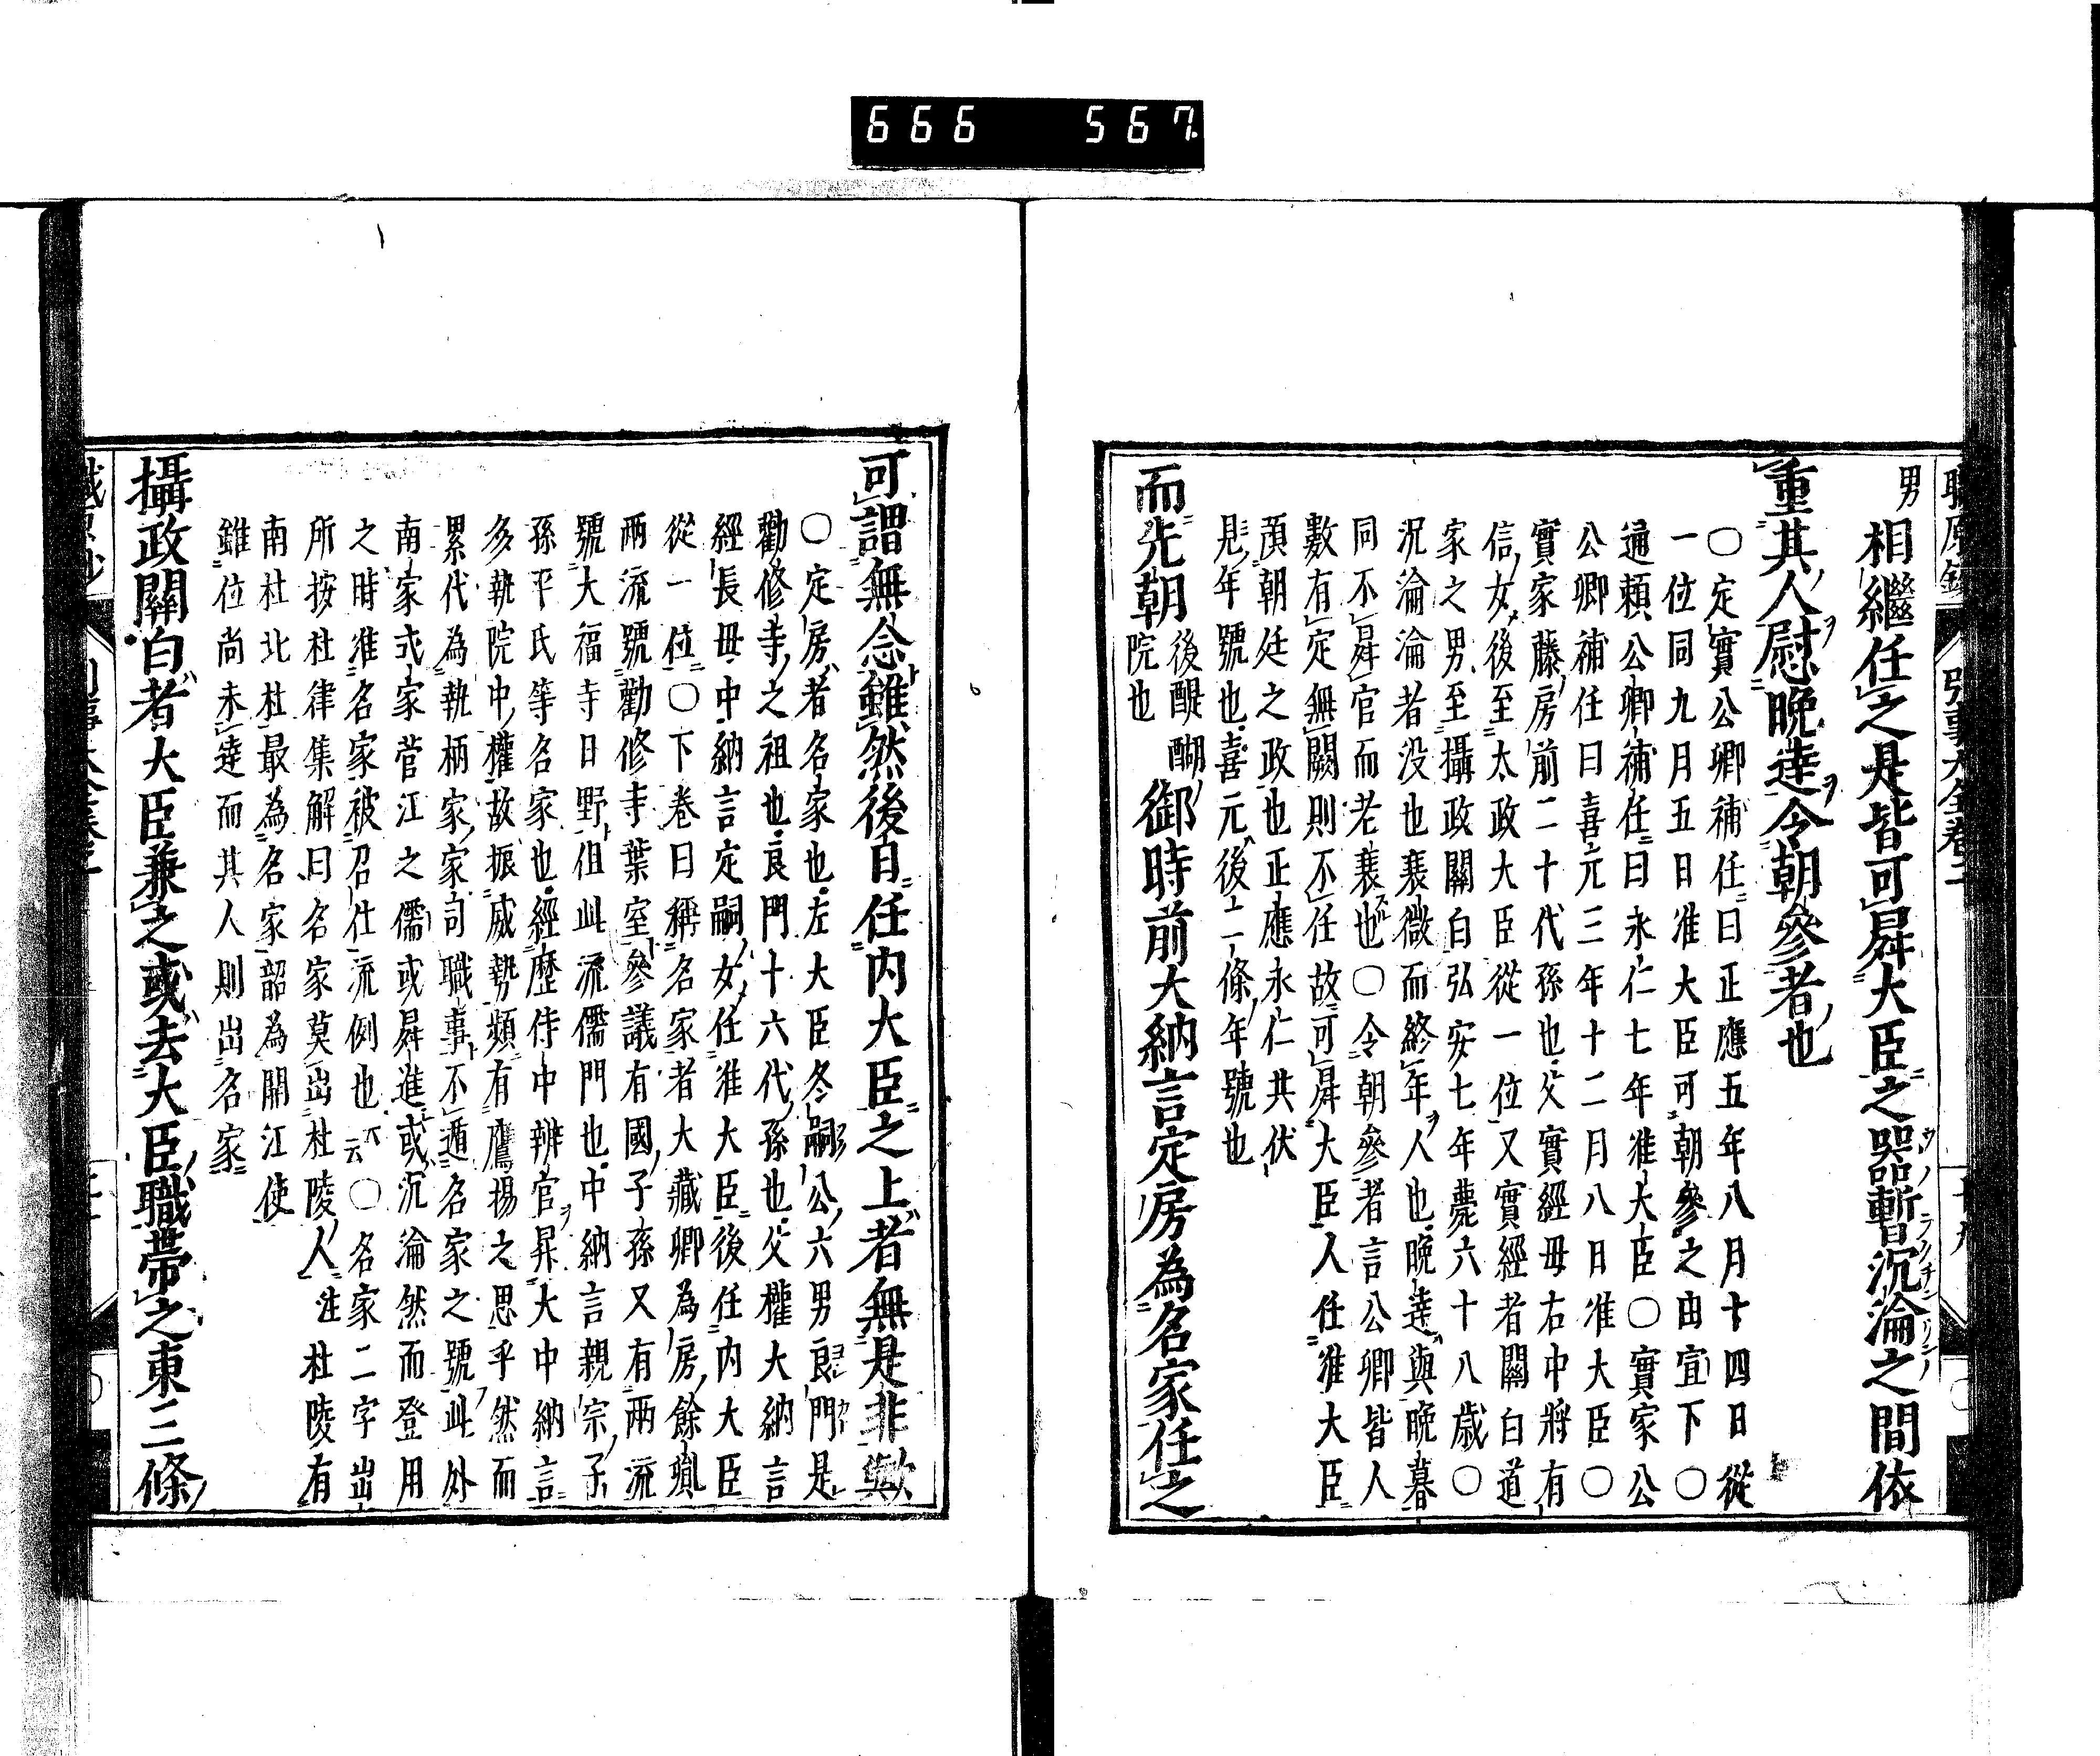 666 567
男相繼任之是皆可昇大臣之器暫沉淪之間依
重其人慰晩達令朝參者也
○定實公卿補任曰正應五年八月十四日從
一位同九月五日准大臣可朝參之由宣下○
通賴公卿補任曰永仁七年准大臣○實家公
公卿補任曰喜元三年十二月八日准大臣○
實家藤房前二十代孫也父實經母右中將有
信女後至太政大臣從一位又實經者關白道
家之男至攝政關白弘安七年薨六十八歳○
沉淪淪者没也衰微而終年人也晩達與晩暮
同不昇官而老衰也○令朝參者言公卿皆人
數有定無闕則不任故可昇大臣人任准大臣
預朝廷之政也正應永仁共伏
見年號也喜元後二條年號也
而先朝後醍醐院也御時前大納言定房為名家任之
可謂無念雖然後自任内大臣之上者無是非歟
○定房者名家也左大臣冬嗣公六男良門是
勸修寺之祖也良門十六代孫也父權大納言
經長母中納言定嗣女任准大臣後任内大臣
從一位○下卷曰稱名家者大藏卿為房餘胤
兩流號勸修寺葉室參議有國子孫又有兩流
號大福寺日野但此流儒門也中納言親宗子
孫平氏等名家也經歷侍中辨官昇大中納言
多執院中權故振威勢頻有鷹揚之思乎然而
累代為執柄家家司職事不遁名家之號此外
南家式家菅江之儒或昇進或沉淪然而登用
之時准名家被召仕流例也云云○名家二字出
所按杜律集解曰名家莫出杜陵人注杜陵有
南杜北杜最為名家韶為開江使
雖位尚未達而其人則出名家
攝政關白者大臣兼之或去大臣職帶之東三條